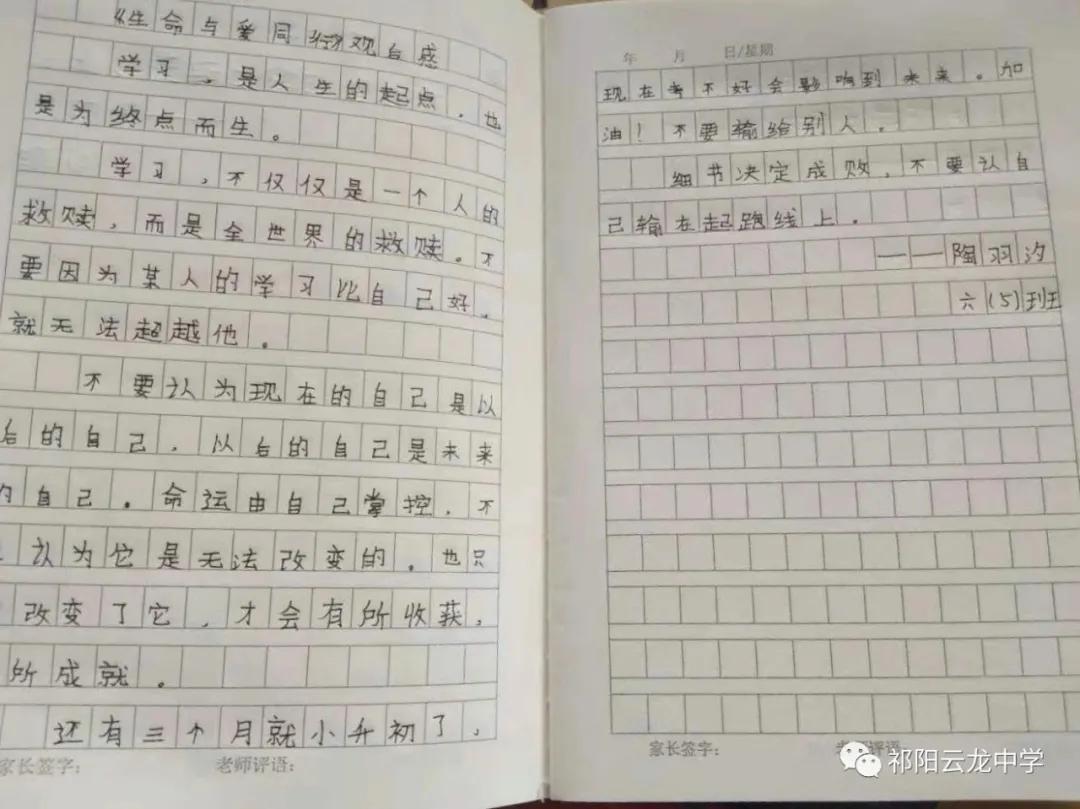 《生命与爱同行》观后感
学习，是人生的起点，也
是为终点而生。
学习，不仅仅是一个人的
救赎，而是全世界的救赎。不
要因为某人的学习比自己好，
就无法超越他。
不要认为现在的自己是以
后的自己，以后的自己是未来
的自己。命运由自己掌控，不
认为它是无法改变的。也只
改变了它，才会有所收获，
所成就。
还有三个月就小升初了，
家长签字：
老师评语：
年 月 日/星期
现在考不好会影响到未来。加
油！不要输给别人。
细节决定成败，不要认自
己输在起跑线上。
——陶羽汐
六（5）班
家长签字：
老师评语：
祁阳云龙中学